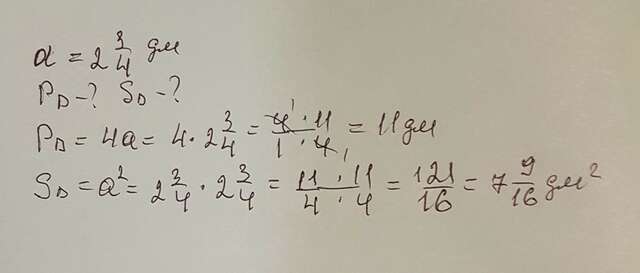 a = 2 3/4 дм
P□ - ? S□ - ?
P□ = 4a = 4 · 2 3/4 = 4¹ · 11 / 1 · 4₁ = 11 дм
S□ = a² = 2 3/4 · 2 3/4 = 11 · 11 / 4 · 4 = 121/16 = 7 9/16 дм²